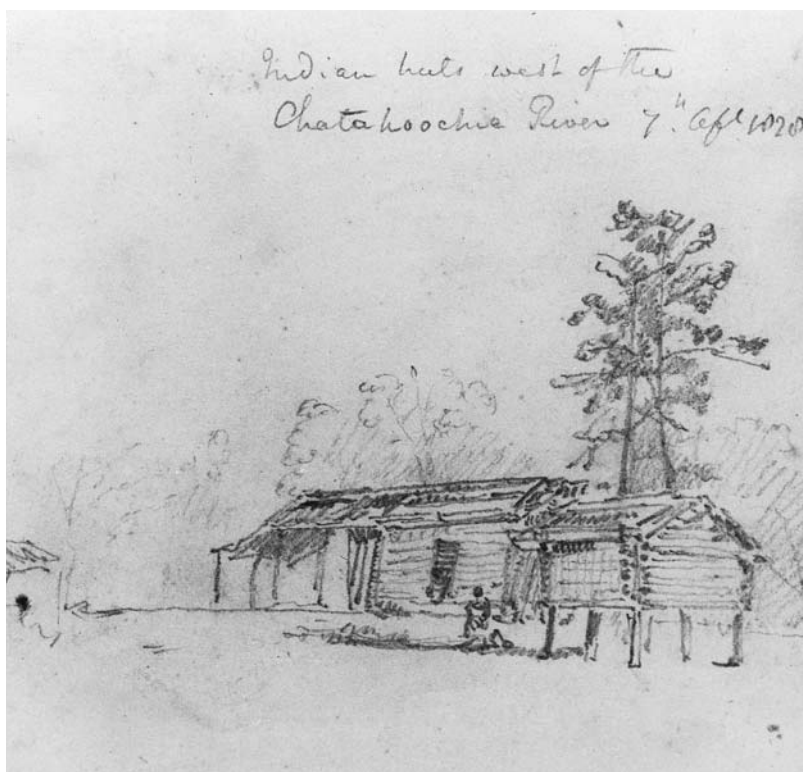 Indian huts west of the
Chatahoochie River 7.th Apl 1828